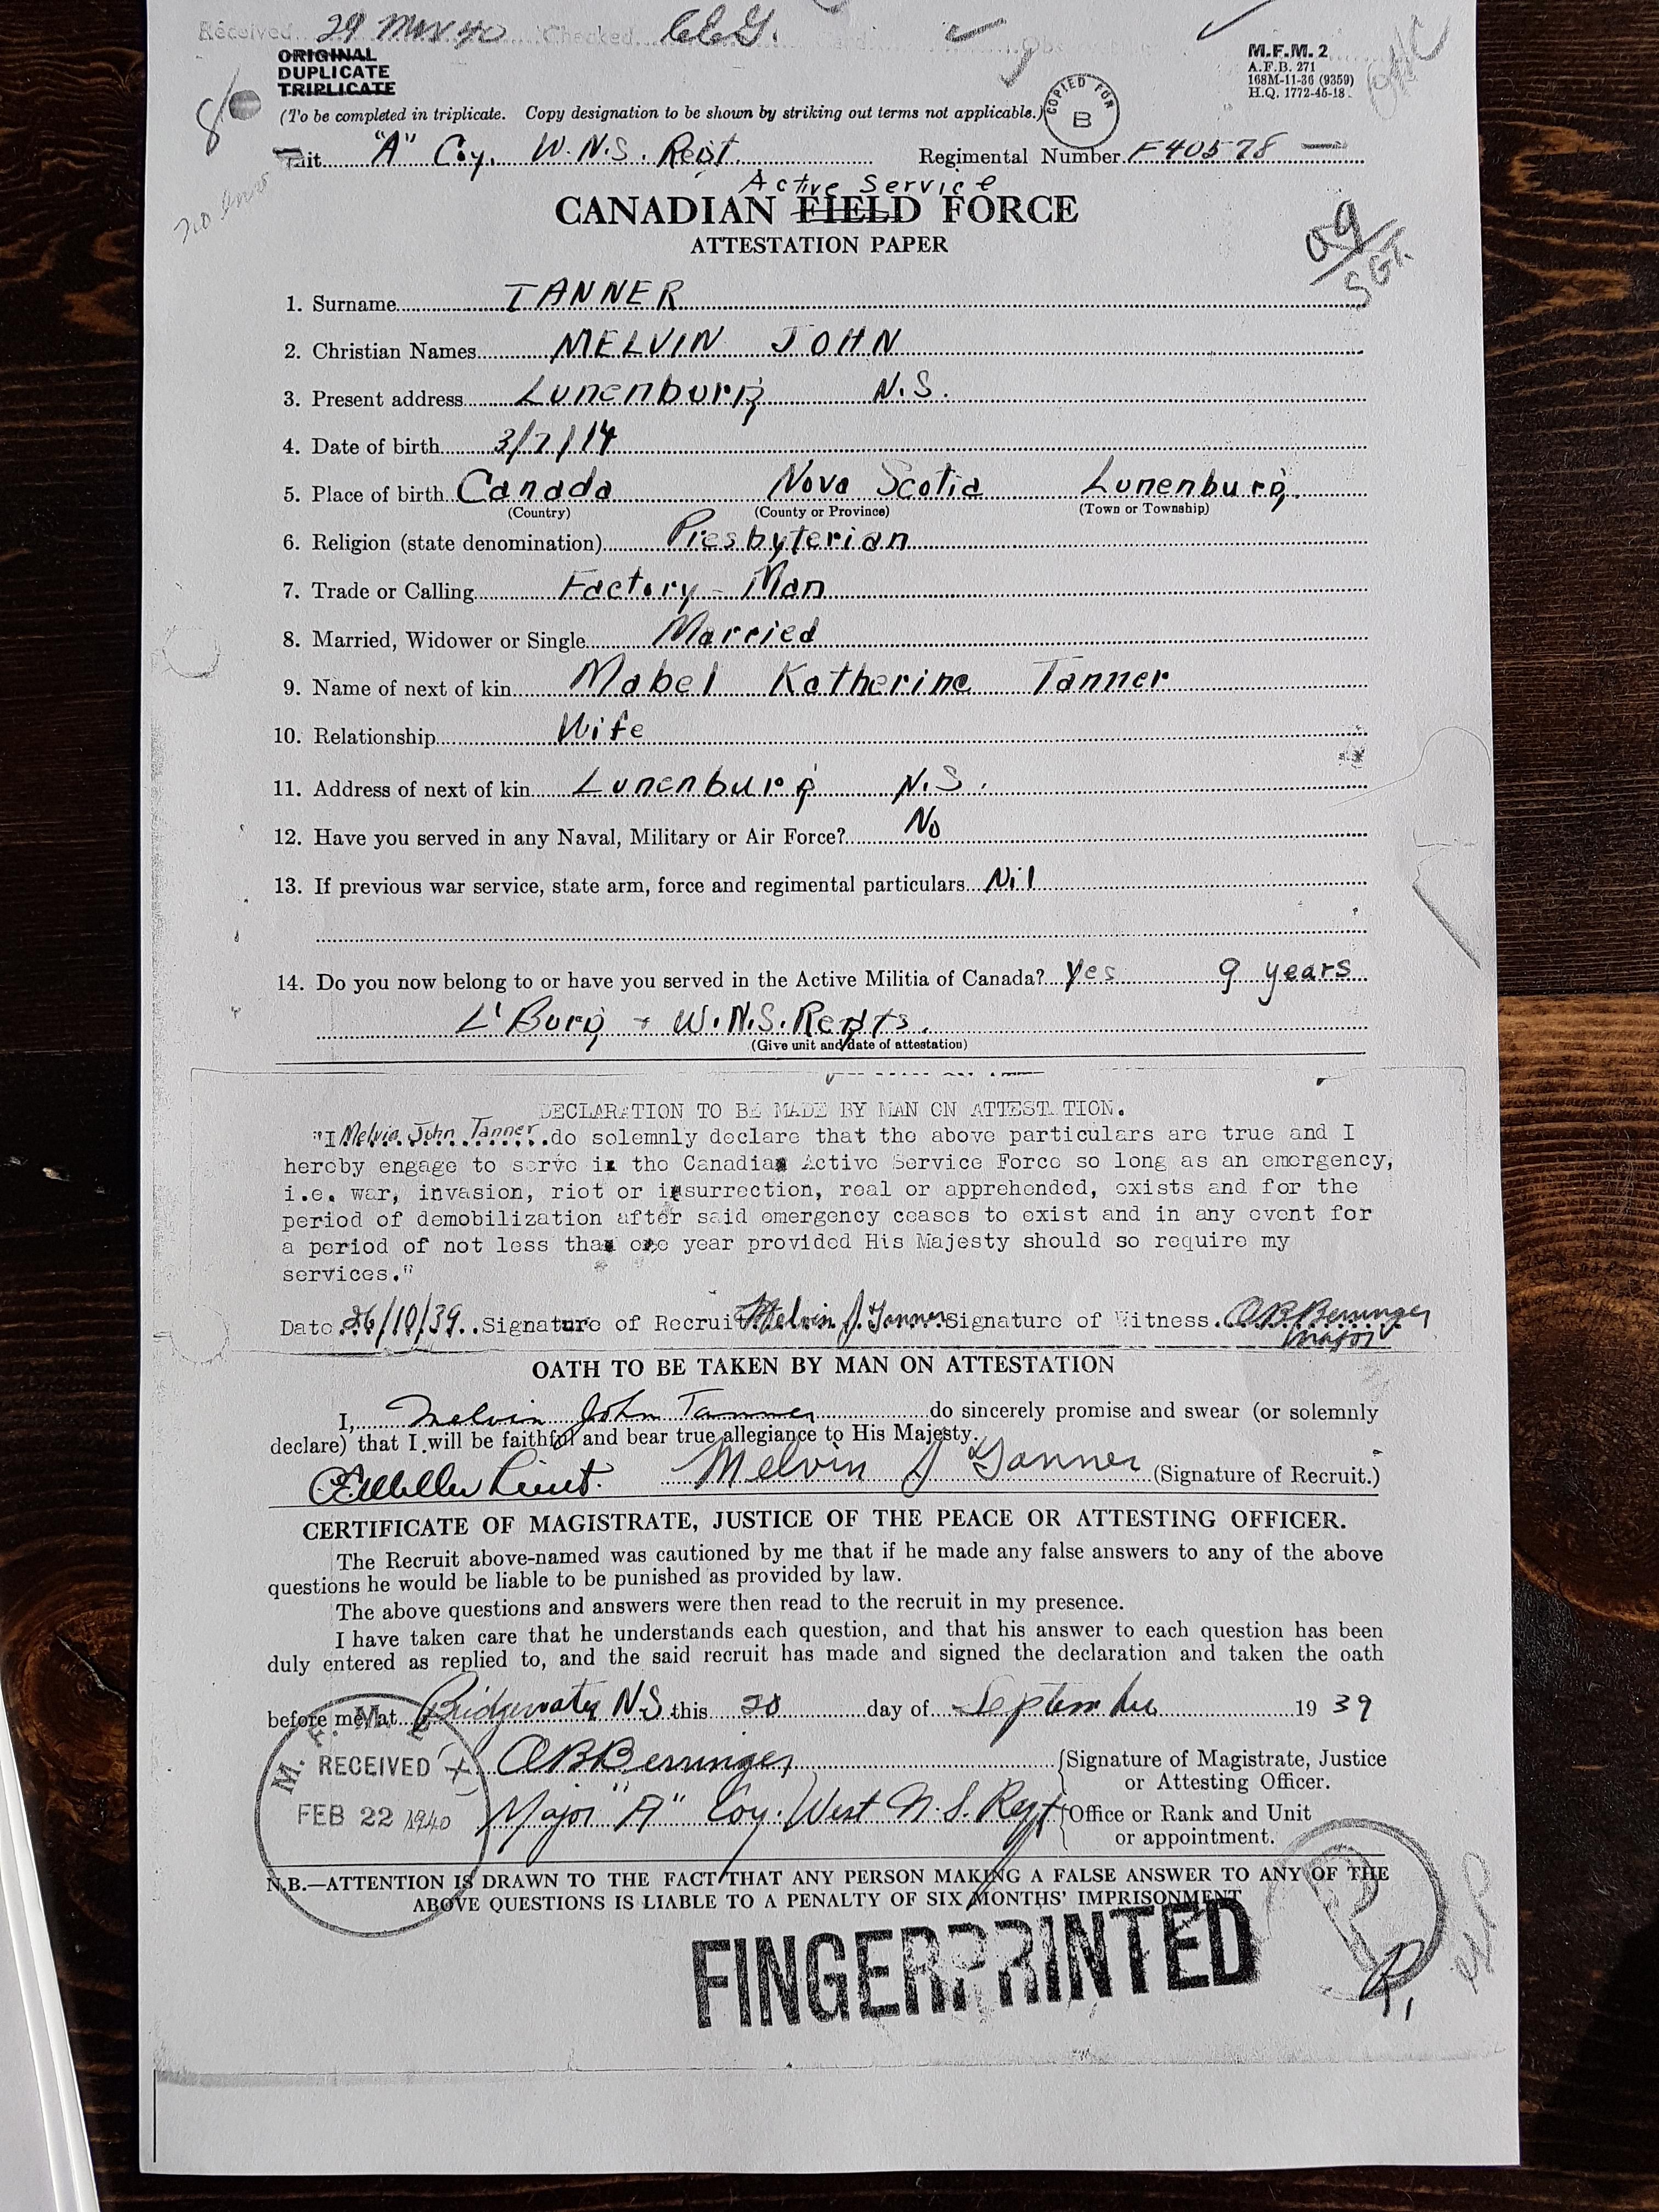 Received 29 Mar 40 Checked
ORIGINAL
DUPLICATE
TRIPLICATE
M.F.M. 2
A.F.B. 271
168M-11-36 (9359)
H.Q. 1772-45-18
(To be completed in triplicate. Copy designation to be shown by striking out terms not applicable.)
COPIED FOR
B
"A" Coy. W.N.S. Regt. Regimental Number F40578
Active Service
CANADIAN FIELD FORCE
ATTESTATION PAPER
SGT.
1. Surname TANNER
2. Christian Names MELVIN JOHN
3. Present address Lunenburg N.S.
4. Date of birth 3/7/14
5. Place of birth Canada Nova Scotia Lunenburg.
(Country) (County or Province) (Town or Township)
6. Religion (state denomination) Presbyterian
7. Trade or Calling Factory - Man
8. Married, Widower or Single Married
9. Name of next of kin Mabel Katherine Tanner
10. Relationship Wife
11. Address of next of kin Lunenburg N.S.
12. Have you served in any Naval, Military or Air Force? No
13. If previous war service, state arm, force and regimental particulars Nil
14. Do you now belong to or have you served in the Active Militia of Canada? Yes 9 years
L'Burg + W.N.S. Regts.
(Give unit and date of attestation)
DECLARATION TO BE MADE BY MAN ON ATTESTATION.
"I Melvin John Tanner do solemnly declare that the above particulars are true and I
hereby engage to serve in the Canadian Active Service Force so long as an emergency,
i.e. war, invasion, riot or insurrection, real or apprehended, exists and for the
period of demobilization after said emergency ceases to exist and in any event for
a period of not less than one year provided His Majesty should so require my
services."
Date 26/10/39 Signature of Recruit Melvin J. Tanner Signature of Witness. O B Berringer
Major
OATH TO BE TAKEN BY MAN ON ATTESTATION
I, Melvin John Tanner do sincerely promise and swear (or solemnly
declare) that I will be faithful and bear true allegiance to His Majesty.
Lieut. Melvin J Tanner (Signature of Recruit.)
CERTIFICATE OF MAGISTRATE, JUSTICE OF THE PEACE OR ATTESTING OFFICER.
The Recruit above-named was cautioned by me that if he made any false answers to any of the above
questions he would be liable to be punished as provided by law.
The above questions and answers were then read to the recruit in my presence.
I have taken care that he understands each question, and that his answer to each question has been
duly entered as replied to, and the said recruit has made and signed the declaration and taken the oath
before me, at Bridgewater NS this 20 day of September 1939
O B Berringer {Signature of Magistrate, Justice
or Attesting Officer.
Major "A" Coy. West N.S. Regt {Office or Rank and Unit
or appointment.
RECEIVED
FEB 22 1940
N.B.—ATTENTION IS DRAWN TO THE FACT THAT ANY PERSON MAKING A FALSE ANSWER TO ANY OF THE
ABOVE QUESTIONS IS LIABLE TO A PENALTY OF SIX MONTHS' IMPRISONMENT
FINGERPRINTED
R